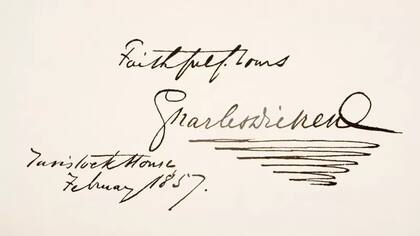 Faithfully yours
Charles Dickens
Tavistock House
February 1857.